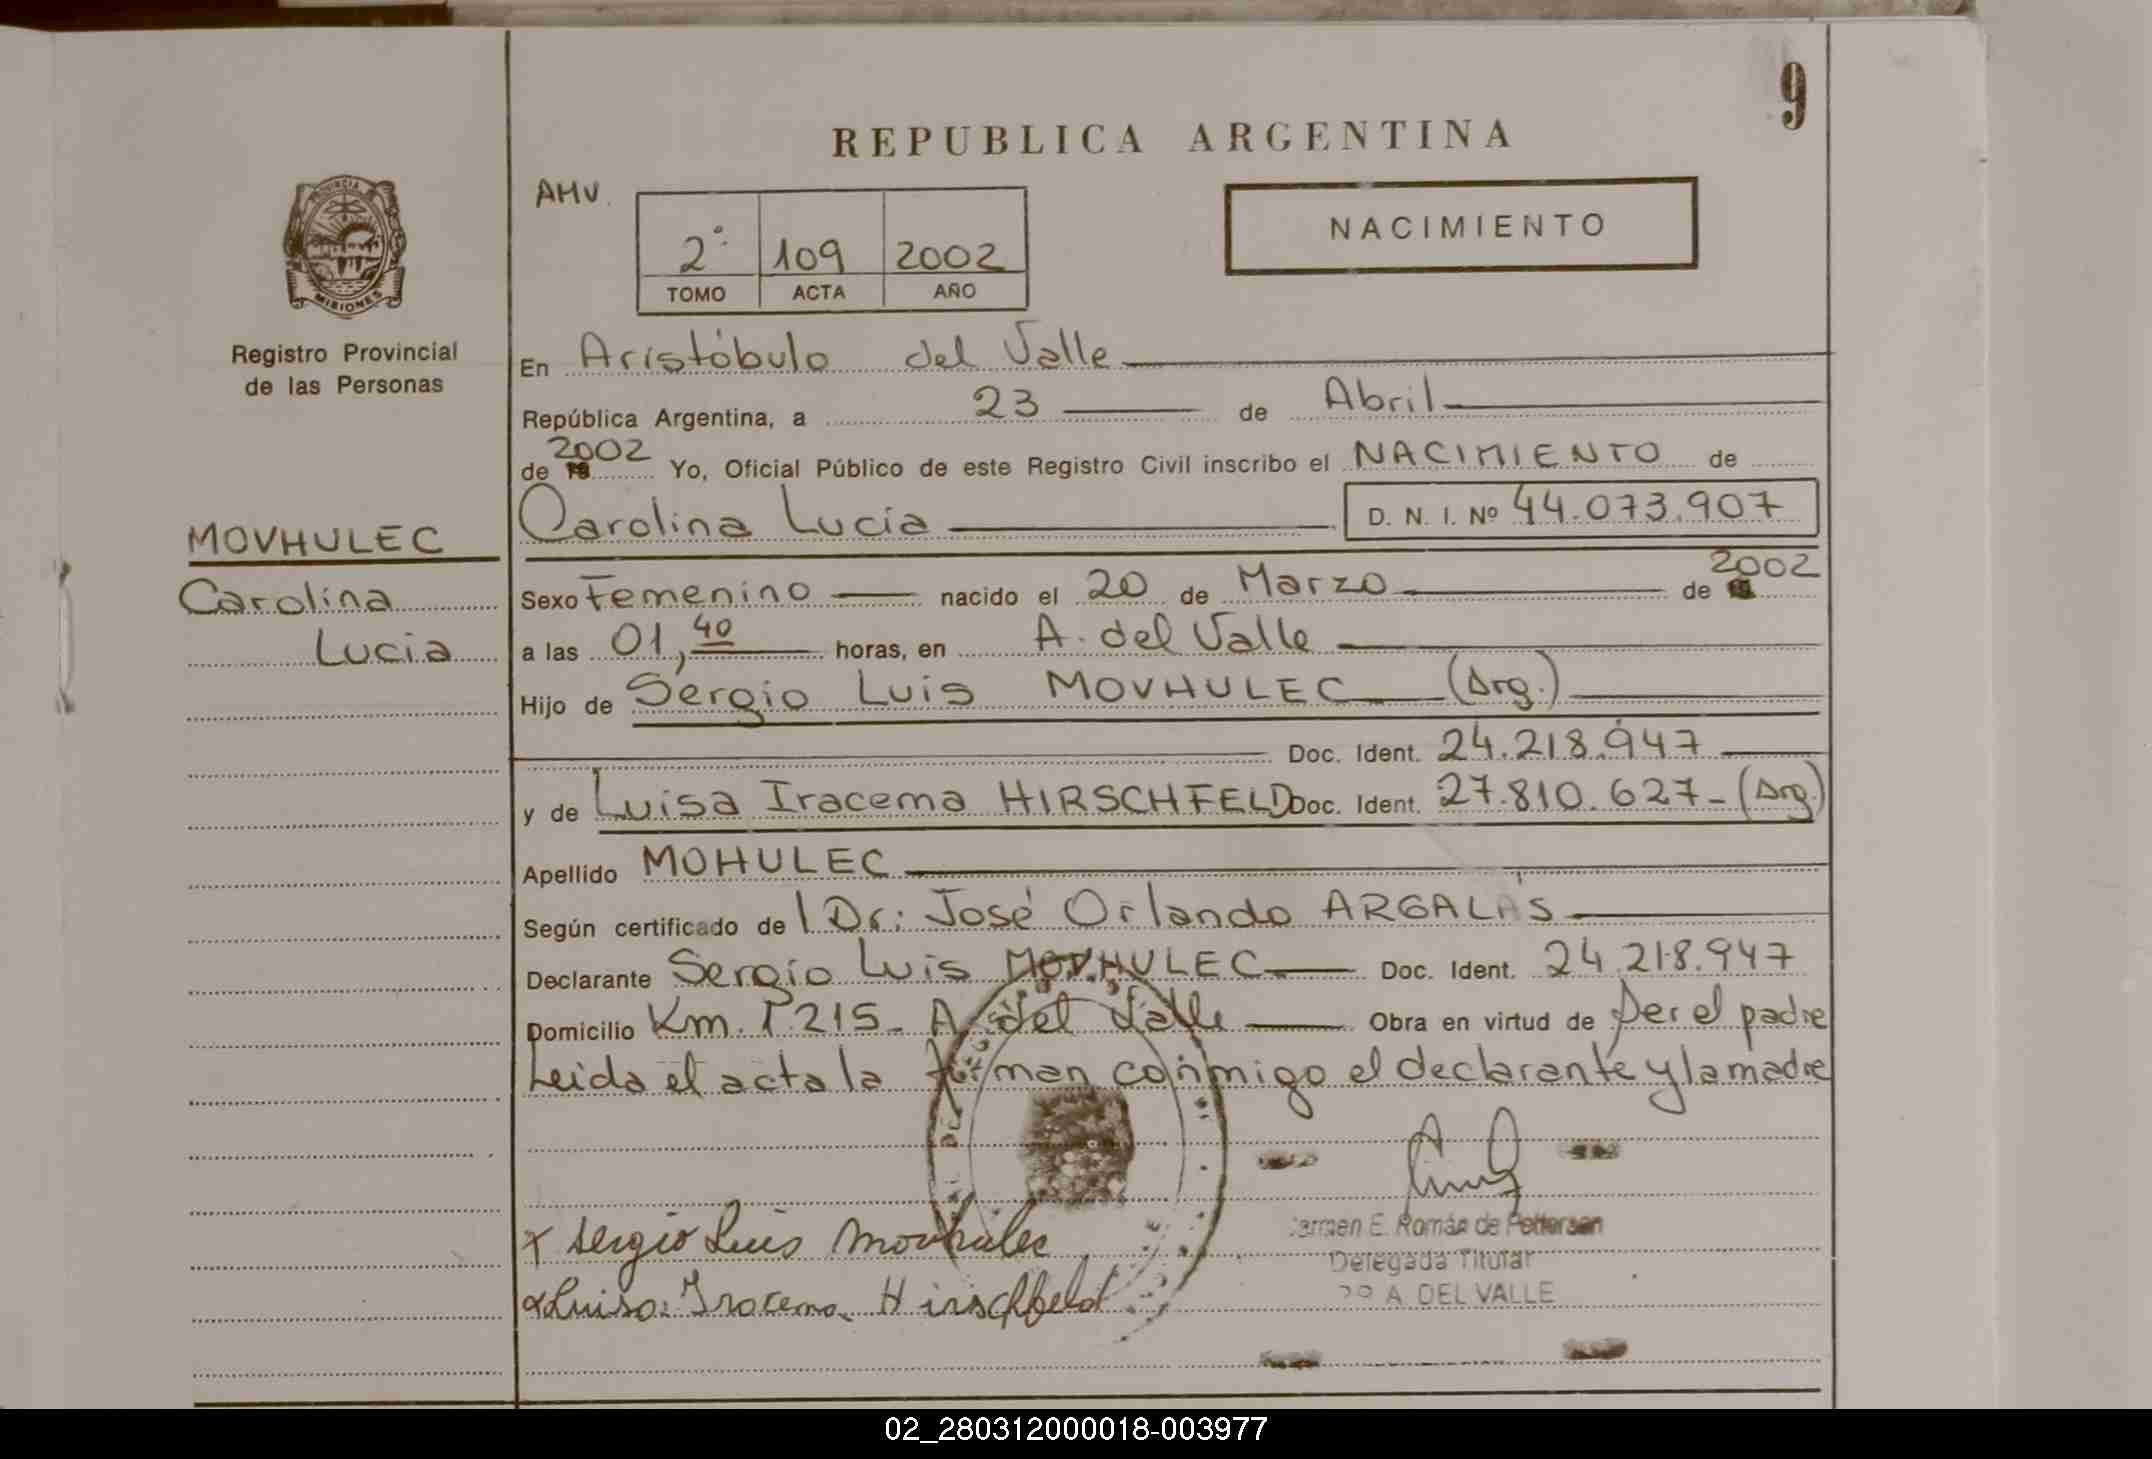 9
REPUBLICA ARGENTINA
PROVINCIA
MISIONES
Registro Provincial
de las Personas
AMV.
2° 109 2002
TOMO ACTA AÑO
NACIMIENTO
En Aristóbulo del Valle
República Argentina, a 23 de Abril
de 2002 Yo, Oficial Público de este Registro Civil inscribo el NACIMIENTO de
Carolina Lucia D. N. I. Nº 44.073.907
MOVHULEC
Carolina
Lucia
Sexo Femenino nacido el 20 de Marzo de 2002
a las 01,40 horas, en A. del Valle
Hijo de Sergio Luis MOVHULEC (Arg.)
Doc. Ident. 24.218.947
y de Luisa Iracema HIRSCHFELD Doc. Ident. 27.810.627- (Arg)
Apellido MOHULEC
Según certificado de Dr: José Orlando ARGALAS
Declarante Sergio Luis MOVHULEC Doc. Ident. 24.218.947
Domicilio Km. 1215- A. del Valle Obra en virtud de Ser el padre
Leida el acta la firman conmigo el declarante y la madre
x Sergio Luis Movhulec
x Luisa Iracema Hirschfeld
Carmen E. Román de Pettersen
Delegada Titular
A. DEL VALLE
02_280312000018-003977